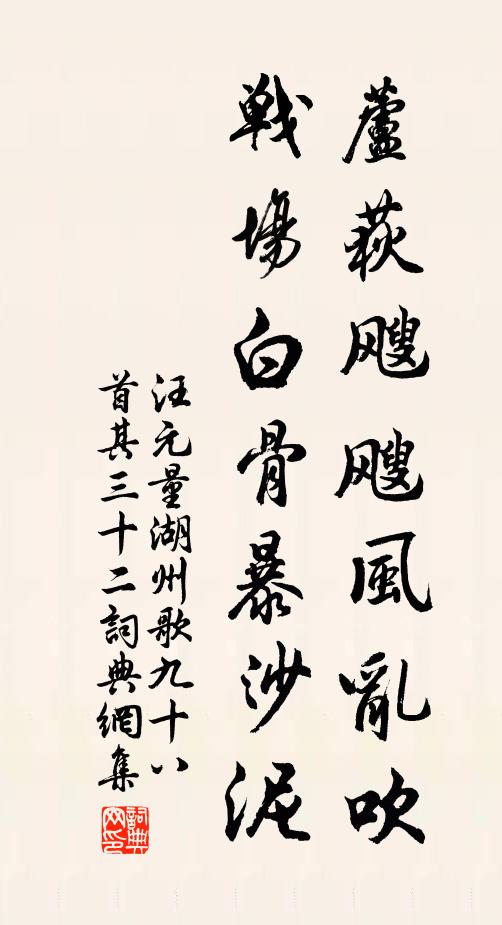 蘆荻颼颼風亂吹
戰場白骨暴沙泥
汪元量湖州歌九十八
首其三十二詞典網集
詞典
网印